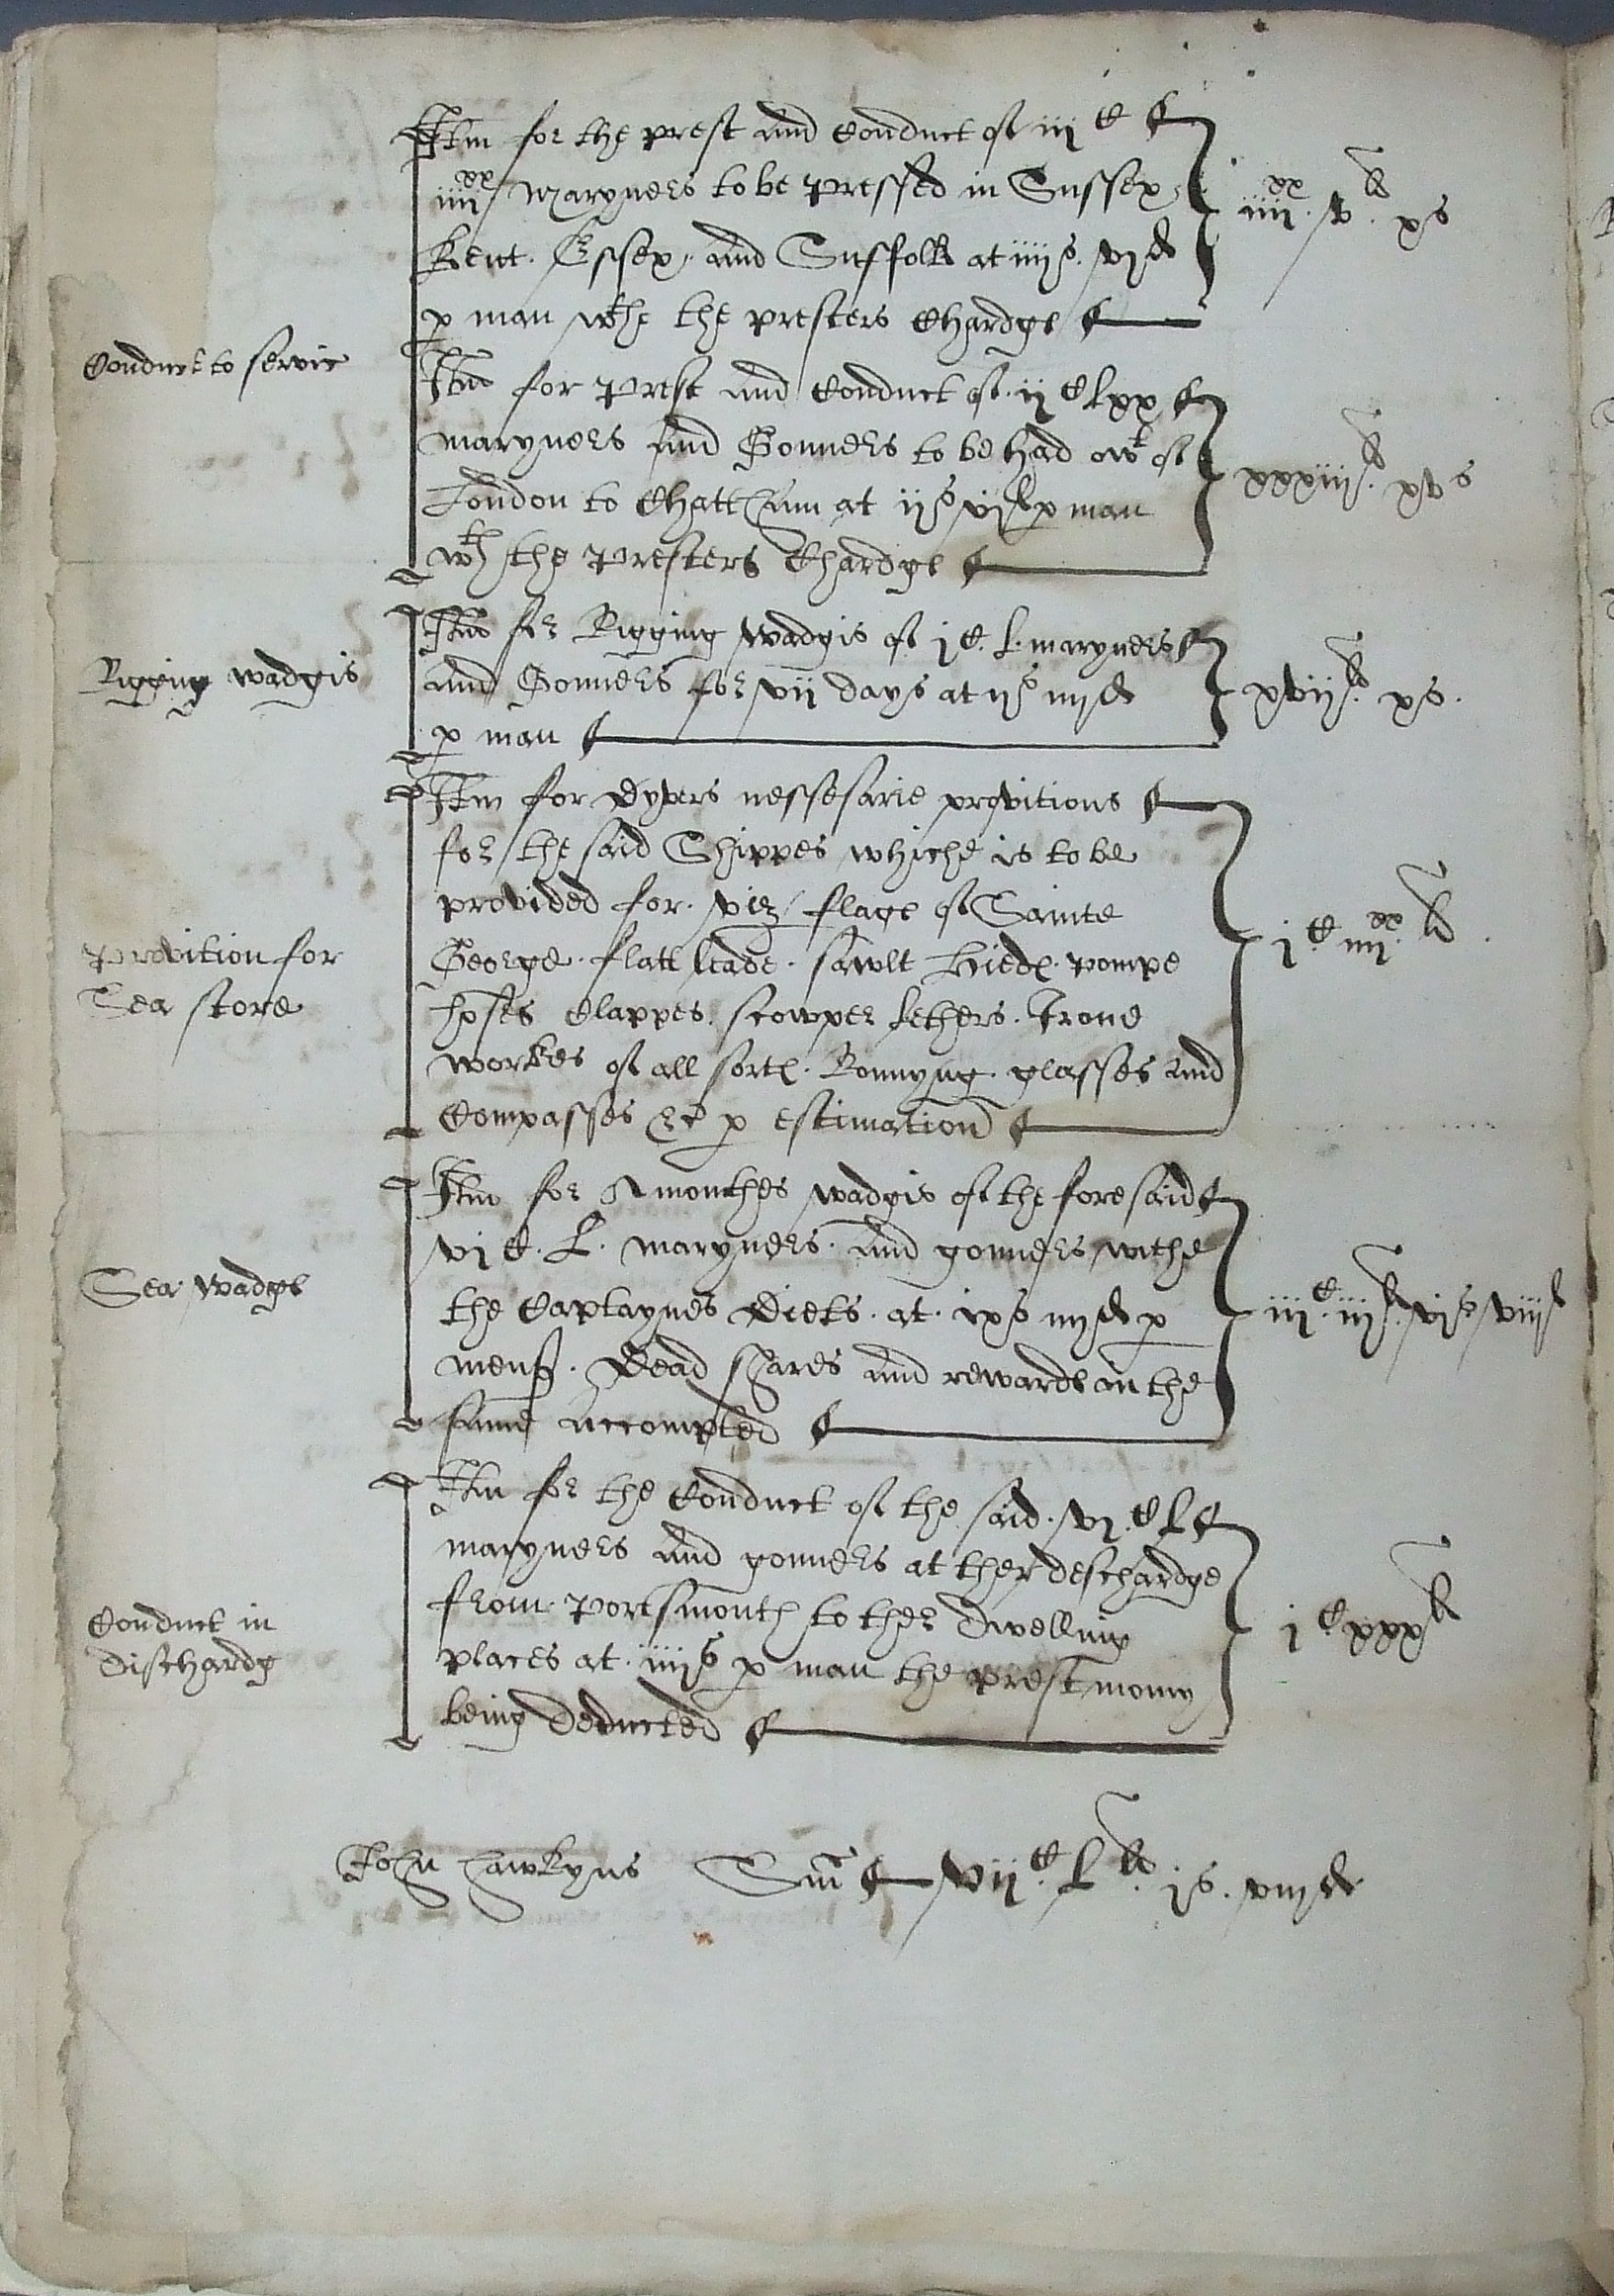 Itm for the prest and Conduct of iij C
iiij xx Maryners to be Pressed in Sussex
Kent. Essex. and Suffolk at iiijs. vjd
p man wth the presters Chardge
iiij xx. v li. xs
Conduct to servic
Itm for Prest and Conduct of. ij C lxx
maryners and Gonners to be had owt of
London to Chattham at ijs vjd p man
wth the Presters Chardge
xxxiij li. xvs
Itm for Rigging wadgis of j C. l. maryners
and Gonners for vij days at ijs iiijd
p man
Rigging wadgis
xvij li. xs.
Itm for Dyvers nessesarie provitions
for the said Shippes whiche is to be
provided for. viz flage of Sainte
George. flatt leade. sawlt Hiedes. pompe
hoses Clappes. scowper lethers. Irone
workes of all sortes. Ronnyng. glasses and
Compasses &c p estimation
Provition for
Sea store
j C iiij xx. li.
Itm for A monthes wadgis of the foresaid
vj C. L. maryners. and gonners withe
the Captaynes Diets. at. ixs iiijd p
mens. Dead shares and rewards in the
same accompted
Sea wadge
iij C. iij li. vjs viijd
Itm for the Conduct of the said. vj. C l
maryners and gonners at ther deschardge
from Portsmouth to ther Dwelling
places at. iiijs p man the prest mony
being Deducted
Conduct in
Dischardg
j C. xxx li
John Hawkyns Sum vij C. l li. js. viijd